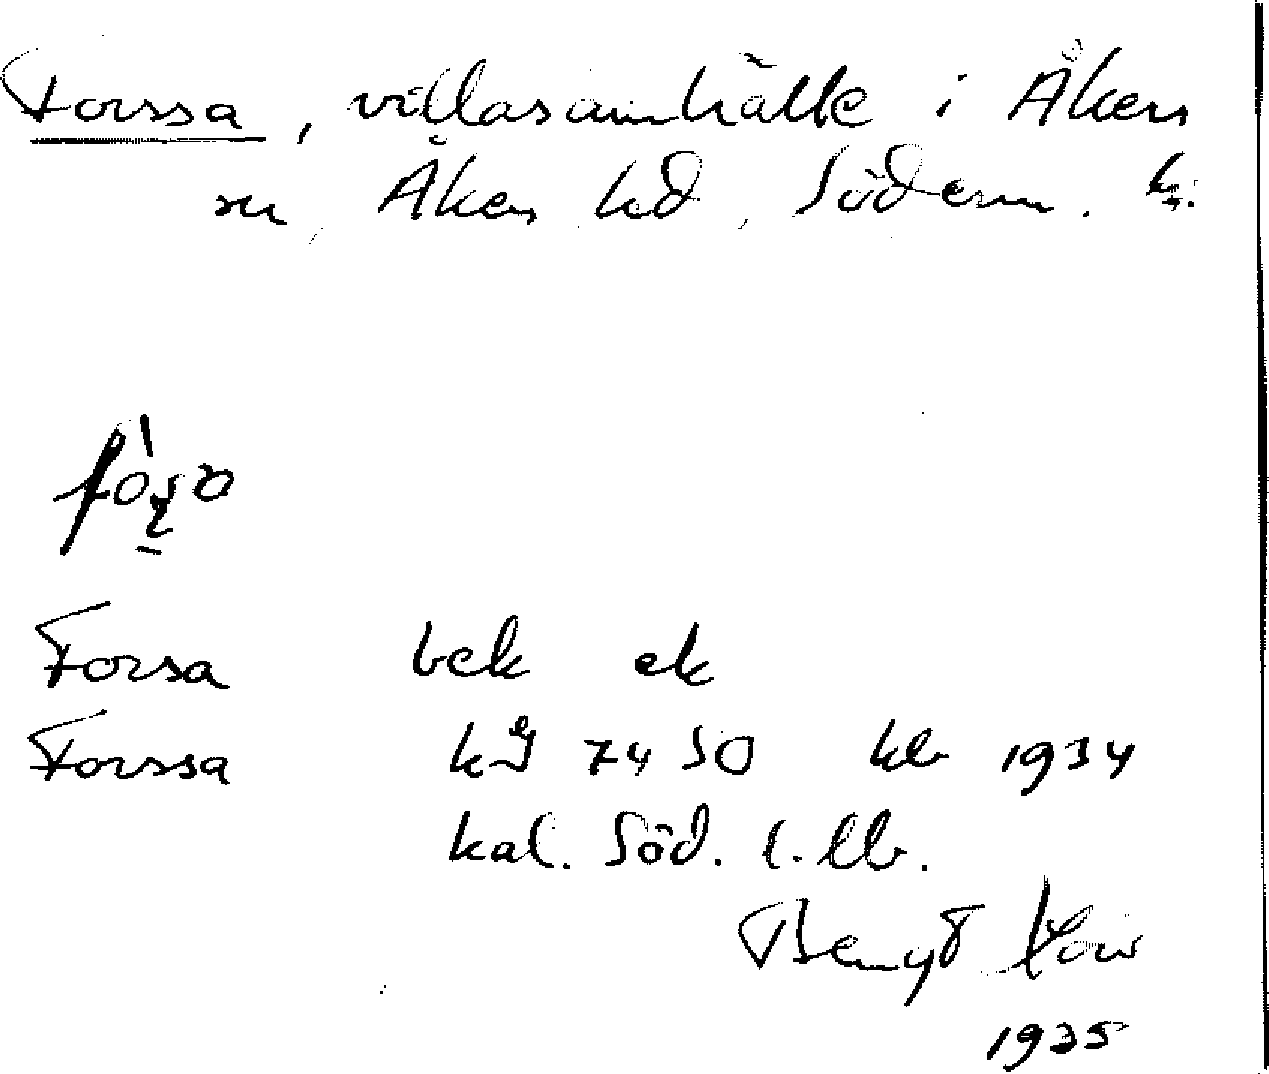 Forssa, villasamhälle i Åkers
sn, Åkers hd, Söderm. l:
Forsa bek ek
Forssa kg 7450 kb 1934
kal. Söd. l. lb.
Bengt
1935